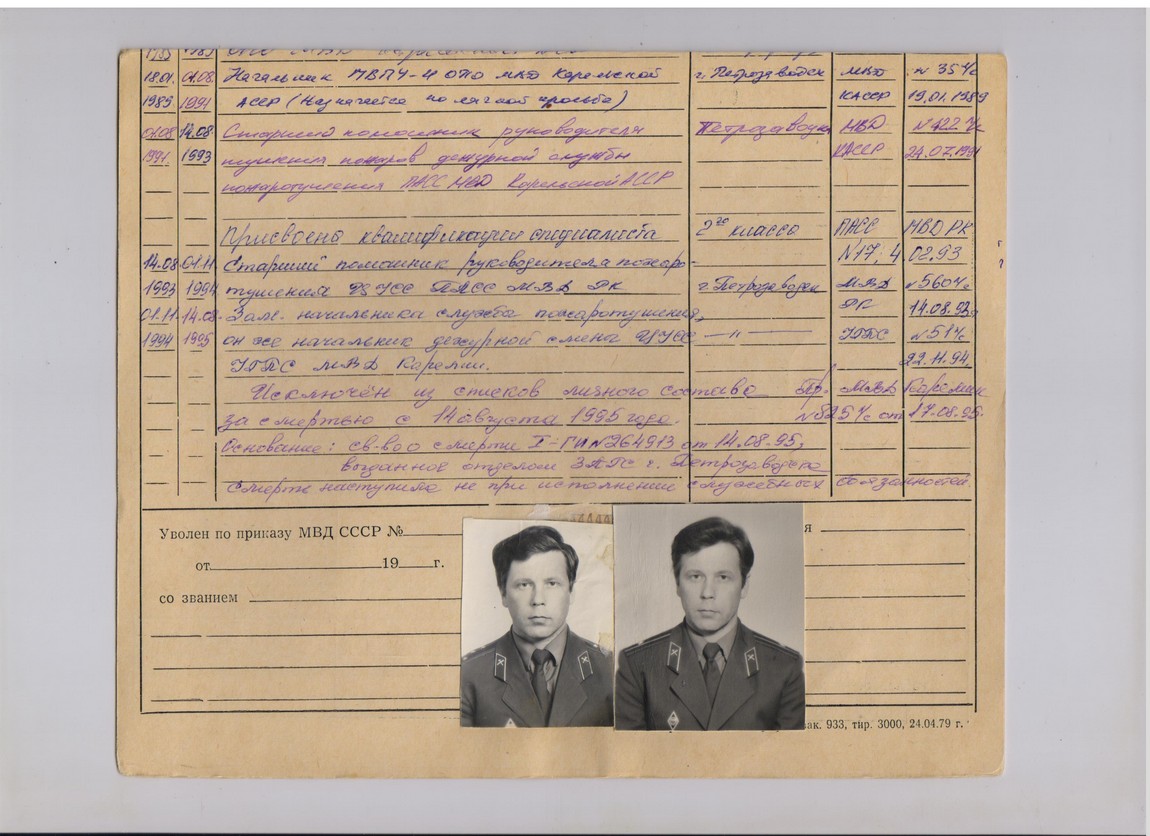 18.01. 01.08. Начальник МВПЧ-4 ОПО МВД Карельской г. Петрозаводск МВД № 35 л/с
1989 1991 АССР (Назначается по личной просьбе) КАССР 19.01.1989
01.08 14.08. Старший помощник руководителя Петрозаводск МВД № 422 л/с
1991 1993 тушения пожаров дежурной службы КАССР 24.07.1991
пожаротушения ПАСС МВД Карельской АССР
Присвоена квалификация специалиста 2го класса ПАСС МВД РК
№ 17: 4 02.93
14.08 01.11 Старший помощник руководителя пожаро-
1993 1994 тушения ЦУСС ПАСС МВД РК г. Петрозаводск МВД № 560 л/с
01.11. 14.08. Зам. начальника службы пожаротушения, РК 14.08.93г
1994 1995 он же начальник дежурной смены ЦУСС — " — УГПС № 51 л/с
УГПС МВД Карелии. 22.11.94.
Исключён из списков личного состава Пр. МВД Карелии
за смертью с 14 августа 1995 года. № 825 л/с от 17.08.95.
Основание: св-во о смерти I-ГИ № 264913 от 14.08.95,
выданное отделом ЗАГС г. Петрозаводска
Смерть наступила не при исполнении служебных обязанностей.
Уволен по приказу МВД СССР №
от 19 г.
со званием
зак. 933, тир. 3000, 24.04.79 г.